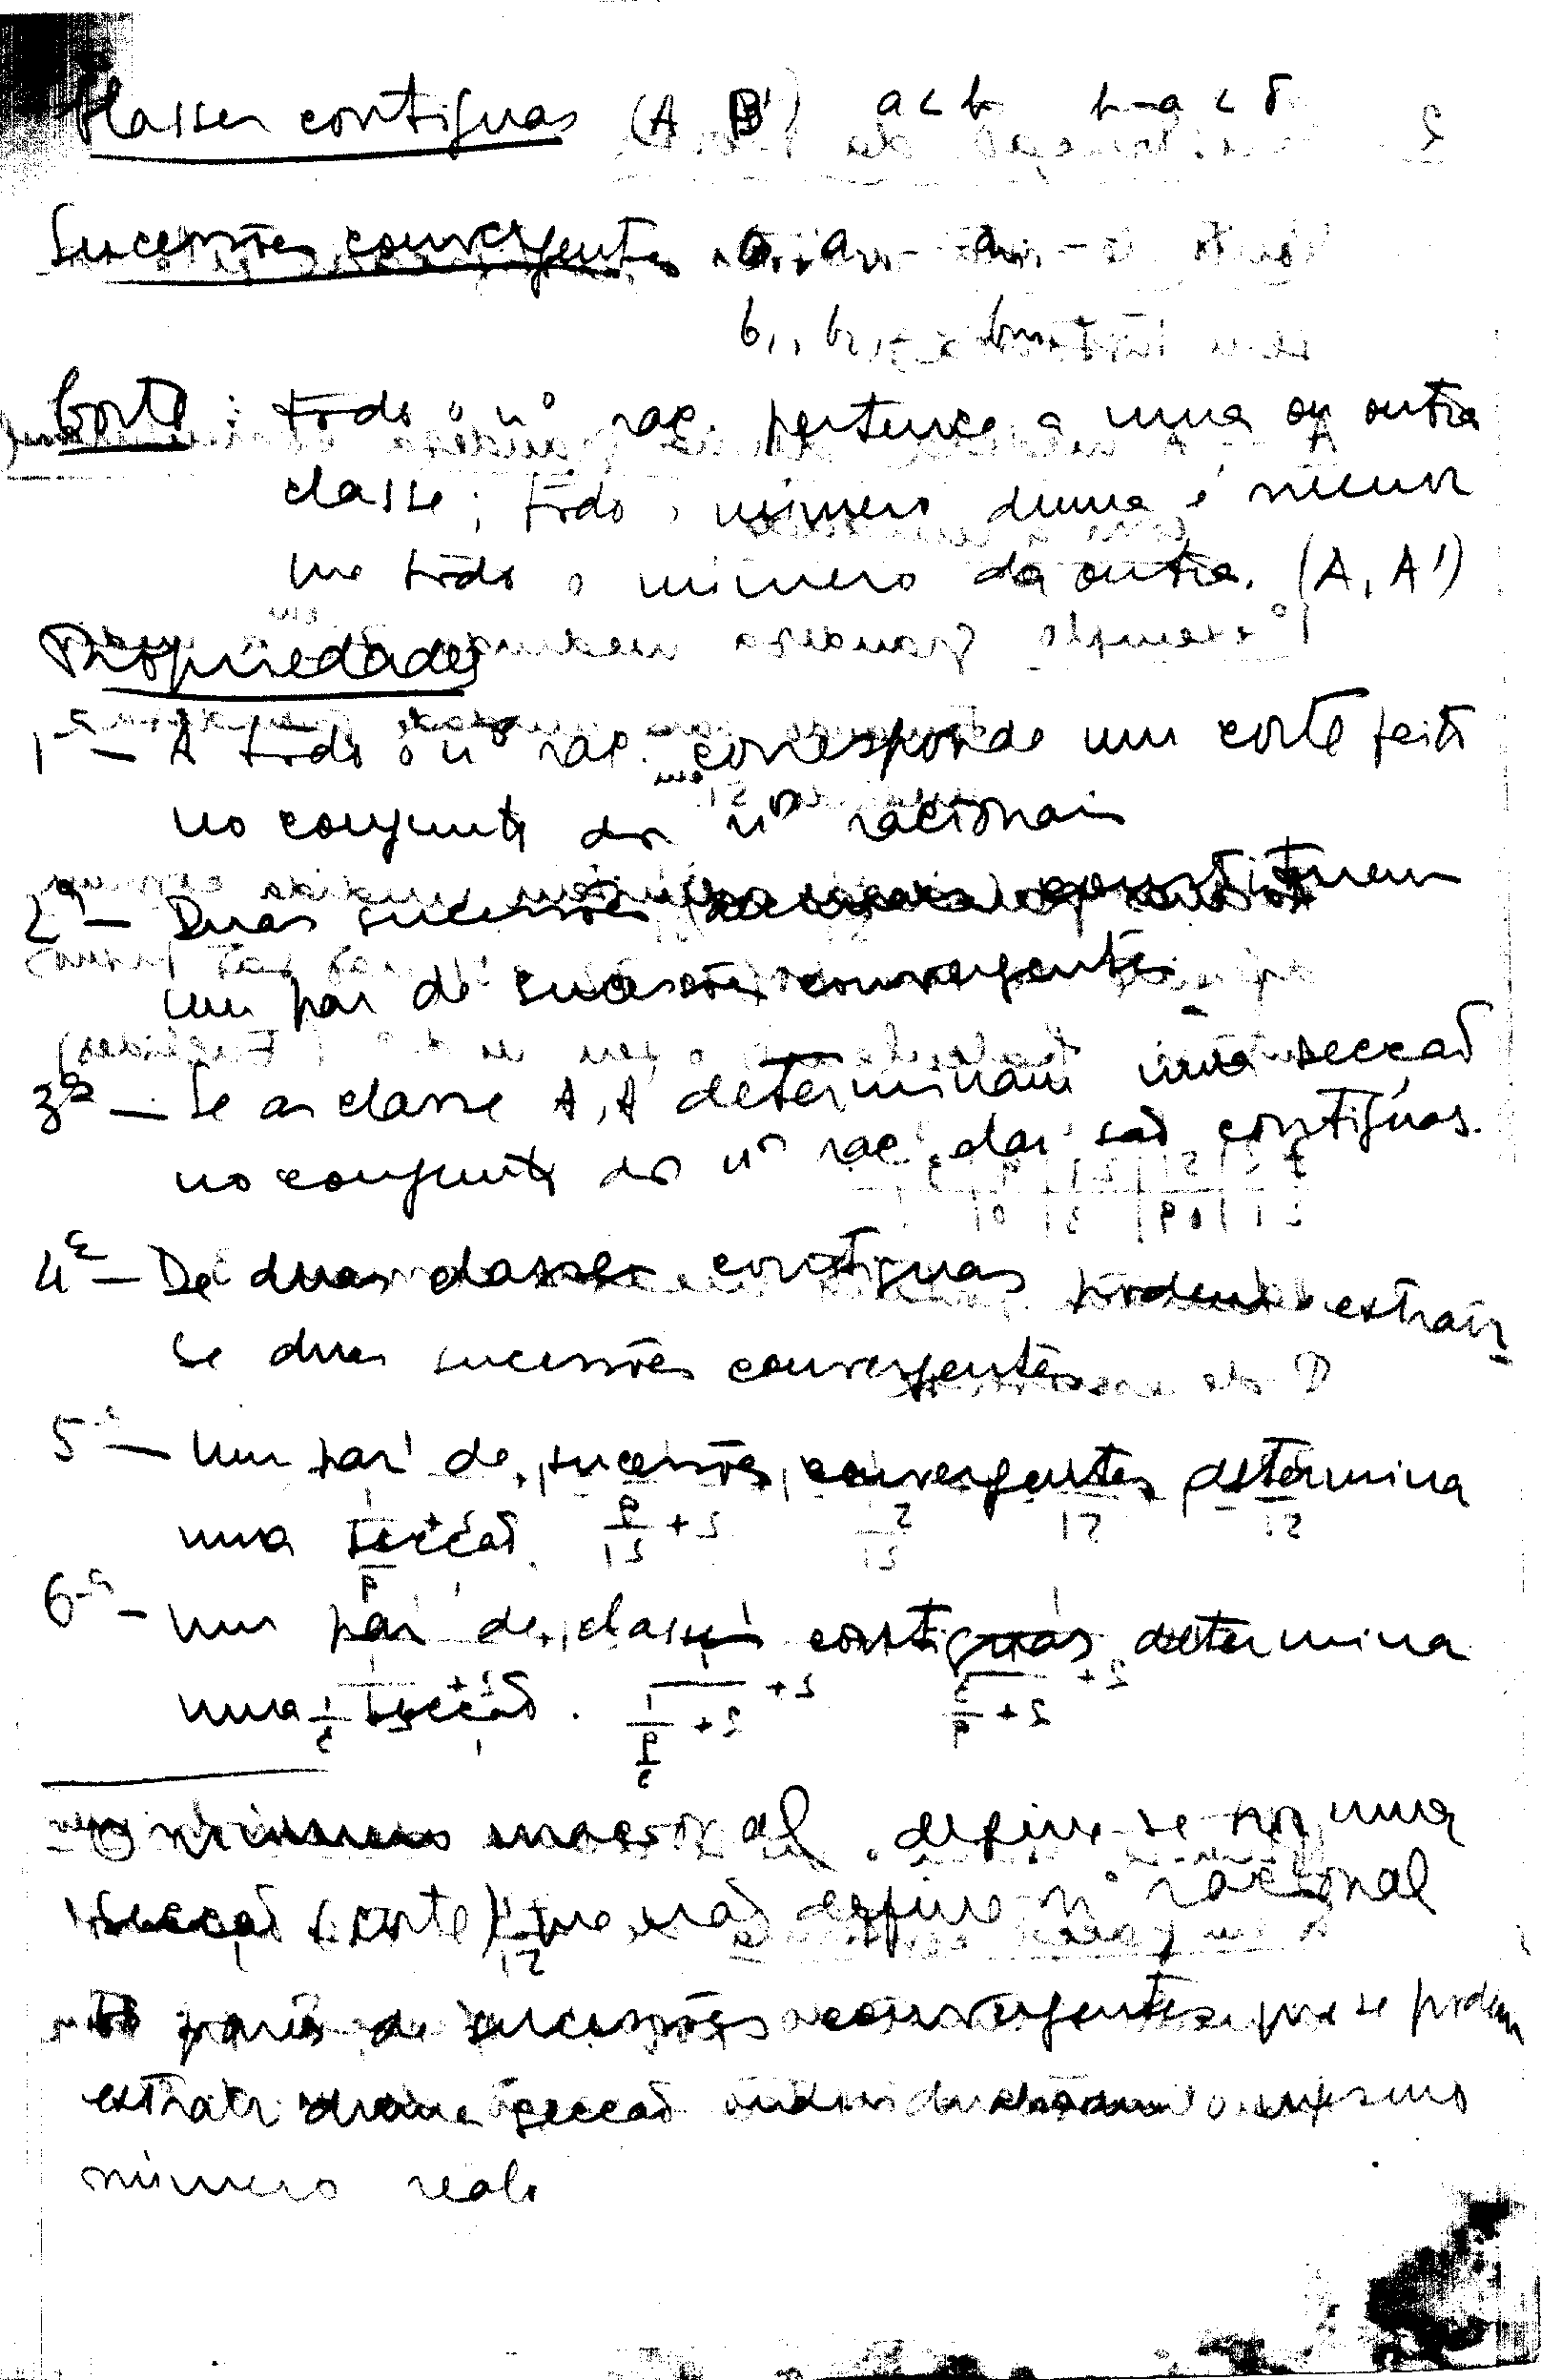 Classes contiguas (A B') a < b b-a < δ
Sucessões convergentes a₁, a₂, - aₙ, -
b₁, b₂, bₙ,
Corte: todo o nº rac. pertence a uma ou outra
classe; todo o número duma é menor
que todo o número da outra. (A, A')
Propriedades
1ª - A todo o nº rac. corresponde um corte feito
no conjunto dos nºs racionais
2ª - Duas sucessões constituem
um par de sucessões convergentes.
3ª - Se as classe A, A' determinam uma secção
no conjunto dos nºs rac. elas são contíguas.
4ª - De duas classes contiguas podem extrair-
se duas sucessões convergentes
5ª - Um par de sucessões convergentes determina
uma secção.
6ª - Um par de classes contiguas determina
uma secção.
O número irracional define-se por uma
secção (corte) que não define nº racional
Os pares de sucessões convergentes que se podem
extrair duma secção o mesmo
número real.